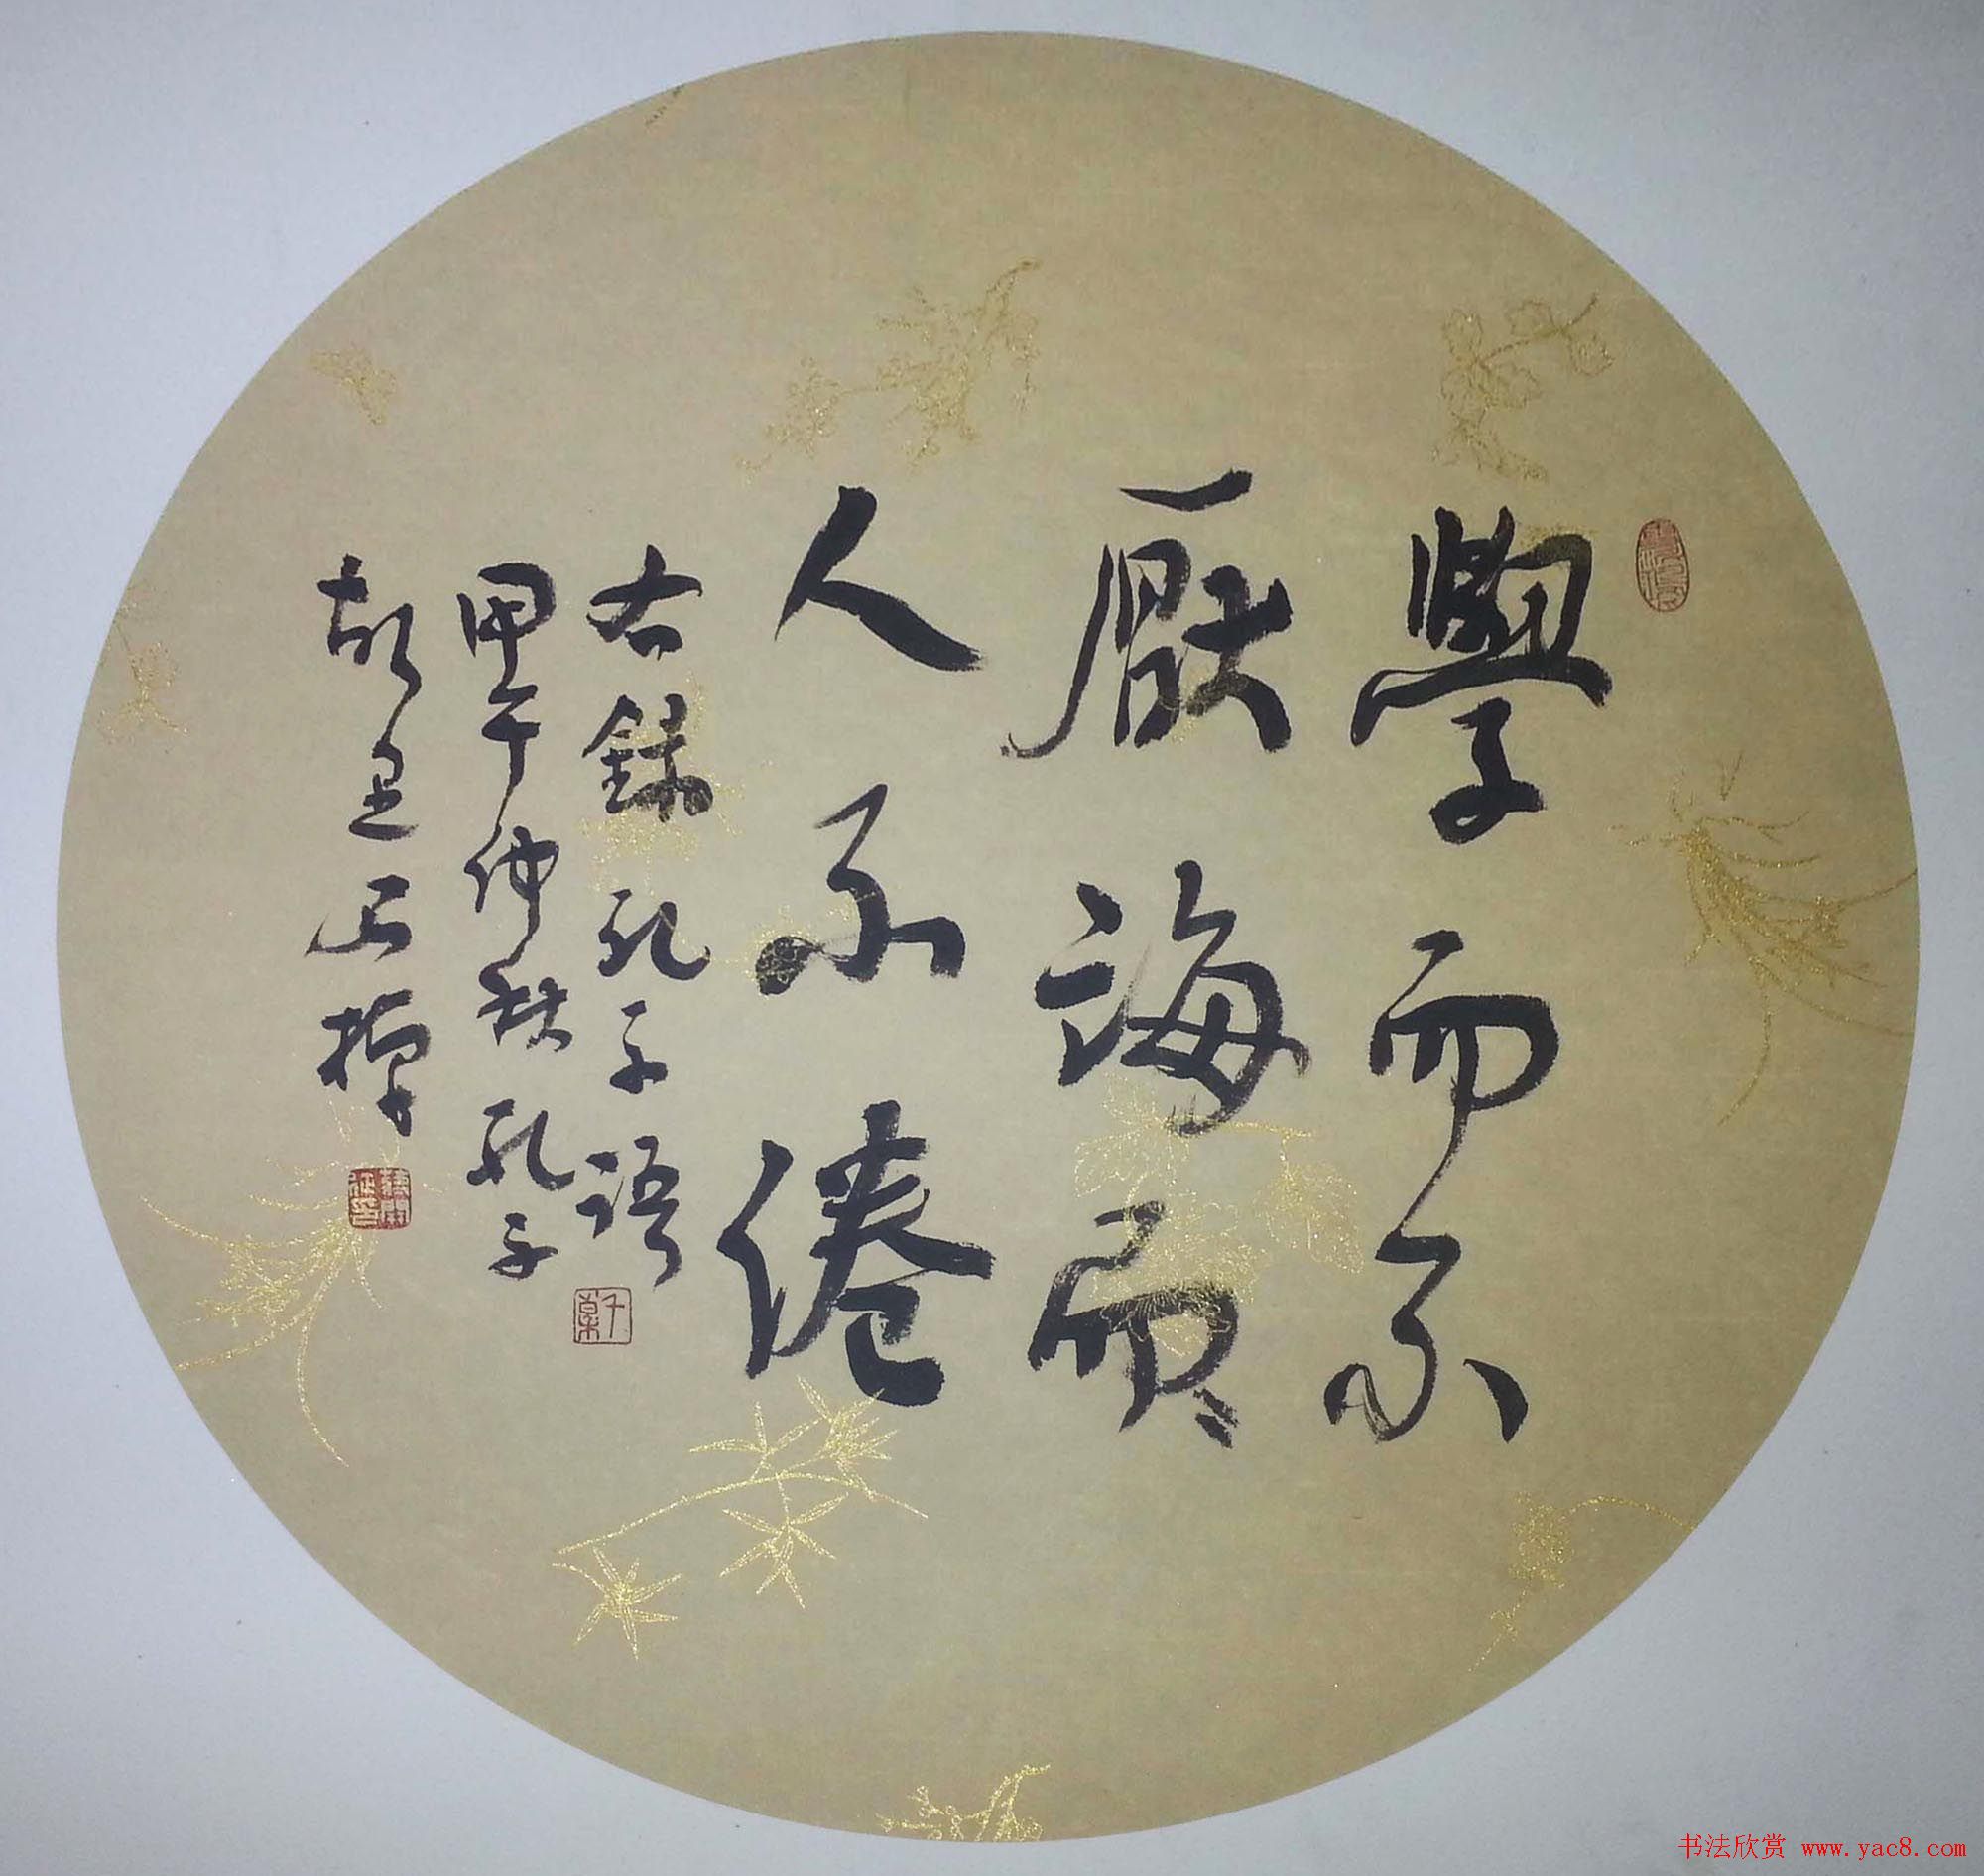 學而不
厭誨而
人不倦
右錄孔子語
甲午仲秋孔子
故里
书法欣赏 www.yac8.com